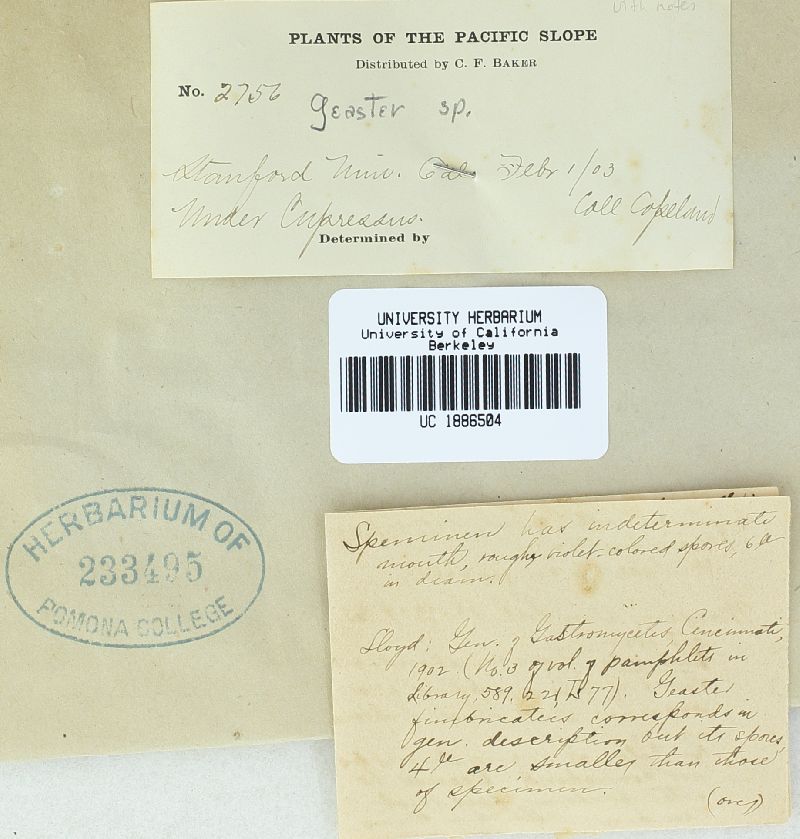 with notes
PLANTS OF THE PACIFIC SLOPE
Distributed by C. F. BAKER
No. 2756
Geaster sp.
Stanford Univ. Cal. Febr 1/03
Under Cupressus. Coll Copeland
Determined by
UNIVERSITY HERBARIUM
University of California
Berkeley
UC 1886504
HERBARIUM OF
233495
POMONA COLLEGE
Speminen has indeterminate
mouth, rough violet-colored spores, 6µ
in diam.
Lloyd: Gen. of Gastromycetes, Cencinnati,
1902. (No. 3 of vol. of pamphlets in
Library, 589. 77). Geaster
fimbricatus corresponds in
gen. description but its spores,
4µ are smaller than those
of specimen.
(over)